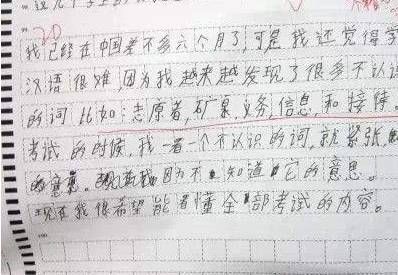 20
我已经在中国差不多六个月了,可是我还觉得学
汉语很难,因为我越来越发现了很多不认识
的词 比如:志愿者,矿泉,义务,信息,和接待。
考试的时候,我一看一个不认识的词,就紧张
的意思。因为不知道它的意思。
现在我很希望能看懂全部考试的内容。